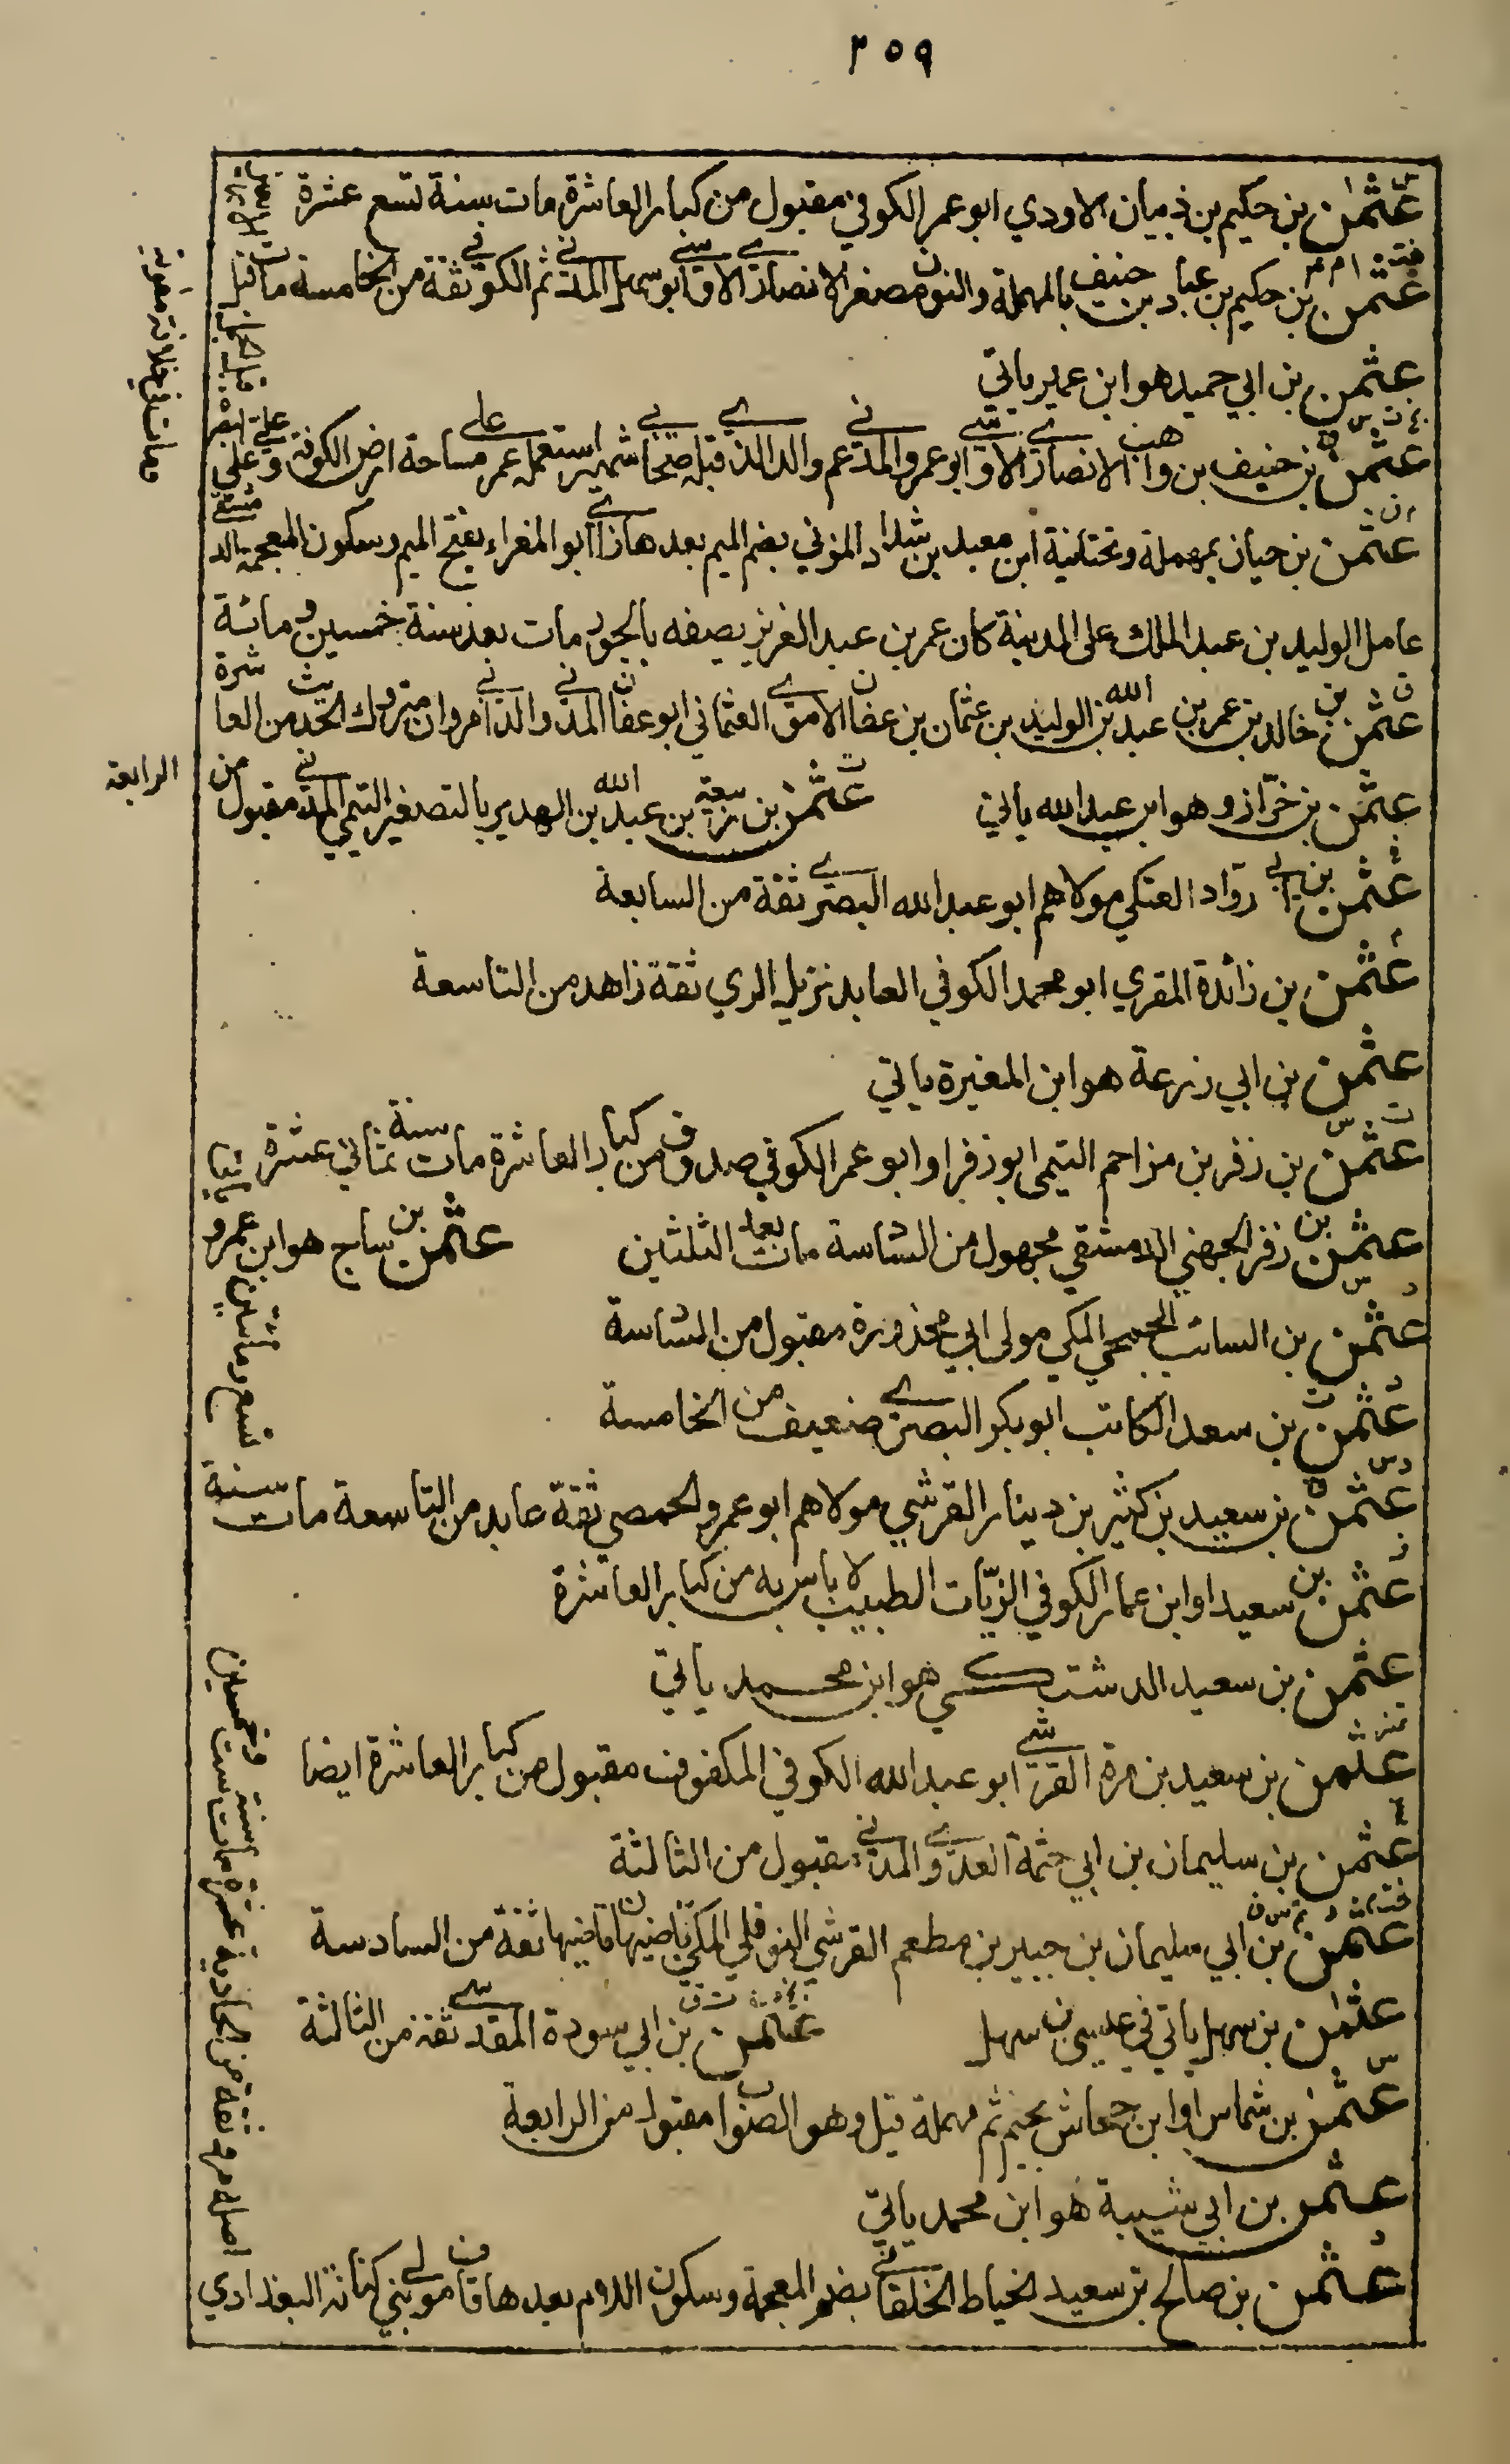 ٣٥٩
عثمن بن حكيم بن ذبيان الاودي ابو عمر الكوفي مقبول من كبار العاشرة مات سنة تسع عشرة
عثمن بن حكيم بن عباد بن حنيف بالمهملة والنون مصغر الانصاري الاوسي ابو سهل المدني ثم الكوفي ثقة من الخامسة مات قبل
عثمن بن ابي حميد هو ابن عمير ياتي
عثمن بن حنيف بن واهب الانصاري الاوسي ابو عمرو المدني عم والد الذي قبله صحابي شهير استعمله عمر على مساحة ارض الكوفة وعلي على البصرة قبل الجمل
مات في خلافة معوية
عثمن بن حيان بمهملة وتحتانية ابن معبد بن شداد المزني بضم الميم بعدها زاي ابو المغراء بفتح الميم وسكون المعجمة الد مشقي
عامل الوليد بن عبد الملك على المدينة كان عمر بن عبد العزيز يصفه بالجور مات بعد سنة خمسين ومائة
عثمن بن خالد بن عمر بن عبد الله بن الوليد بن عثمان بن عفان الاموي العثماني ابو عفان المدني والد ابي مروان متروك الحديث من العاشرة
عثمن بن خرزاذ هو ابن عبد الله ياتي
عثمن بن ربيعة بن عبد الله بن الهدير بالتصغير التيمي المدني مقبول من الرابعة
عثمن بن ابي رواد العتكي مولاهم ابو عبد الله البصري ثقة من السابعة
عثمن بن زائدة المقري ابو محمد الكوفي العابد نزيل الري ثقة زاهد من التاسعة
عثمن بن ابي زرعة هو ابن المغيرة ياتي
عثمن بن زفر بن مزاحم التيمي ابو زفر او ابو عمر الكوفي صدوق من كبار العاشرة مات سنة ثماني عشرة
عثمن بن زفر الجهني الدمشقي مجهول من السادسة مات بعد الثلثين
عثمن بن ساج هو ابن عمرو ياتي
عثمن بن السائب الجمحي المكي مولى ابي محذورة مقبول من السادسة
عثمن بن سعد الكاتب ابو بكر البصري ضعيف من الخامسة
عثمن بن سعيد بن كثير بن دينار القرشي مولاهم ابو عمرو الحمصي ثقة عابد من التاسعة مات سنة
تسع ومائتين
عثمن بن سعيد او ابن عمار الكوفي الزيات الطبيب لا باس به من كبار العاشرة
عثمن بن سعيد الدشتكي هو ابن محمد ياتي
عثمن بن سعيد بن مرة القرشي ابو عبد الله الكوفي المكفوف مقبول من كبار العاشرة ايضا
عثمن بن سليمان بن ابي حثمة العدوي المدني مقبول من الثالثة
عثمن بن ابي سليمان بن جبير بن مطعم القرشي النوفلي المكي قاضيها ثقة من السادسة
عثمن بن سهل ياتي في عيسى بن سهل
عثمن بن ابي سودة المقدسي ثقة من الثالثة
عثمن بن شماس او ابن جحاش بجيم ثم مهملة قيل وهو الصواب مقبول من الرابعة
عثمن بن ابي شيبة هو ابن محمد ياتي
عثمن بن صالح بن سعيد الخياط الخلقاني بضم المعجمة وسكون اللام بعدها قاف مولى بني كنانة البغدادي
اصله مرو ثقة من الحادية عشرة مات سنة ست وخمسين